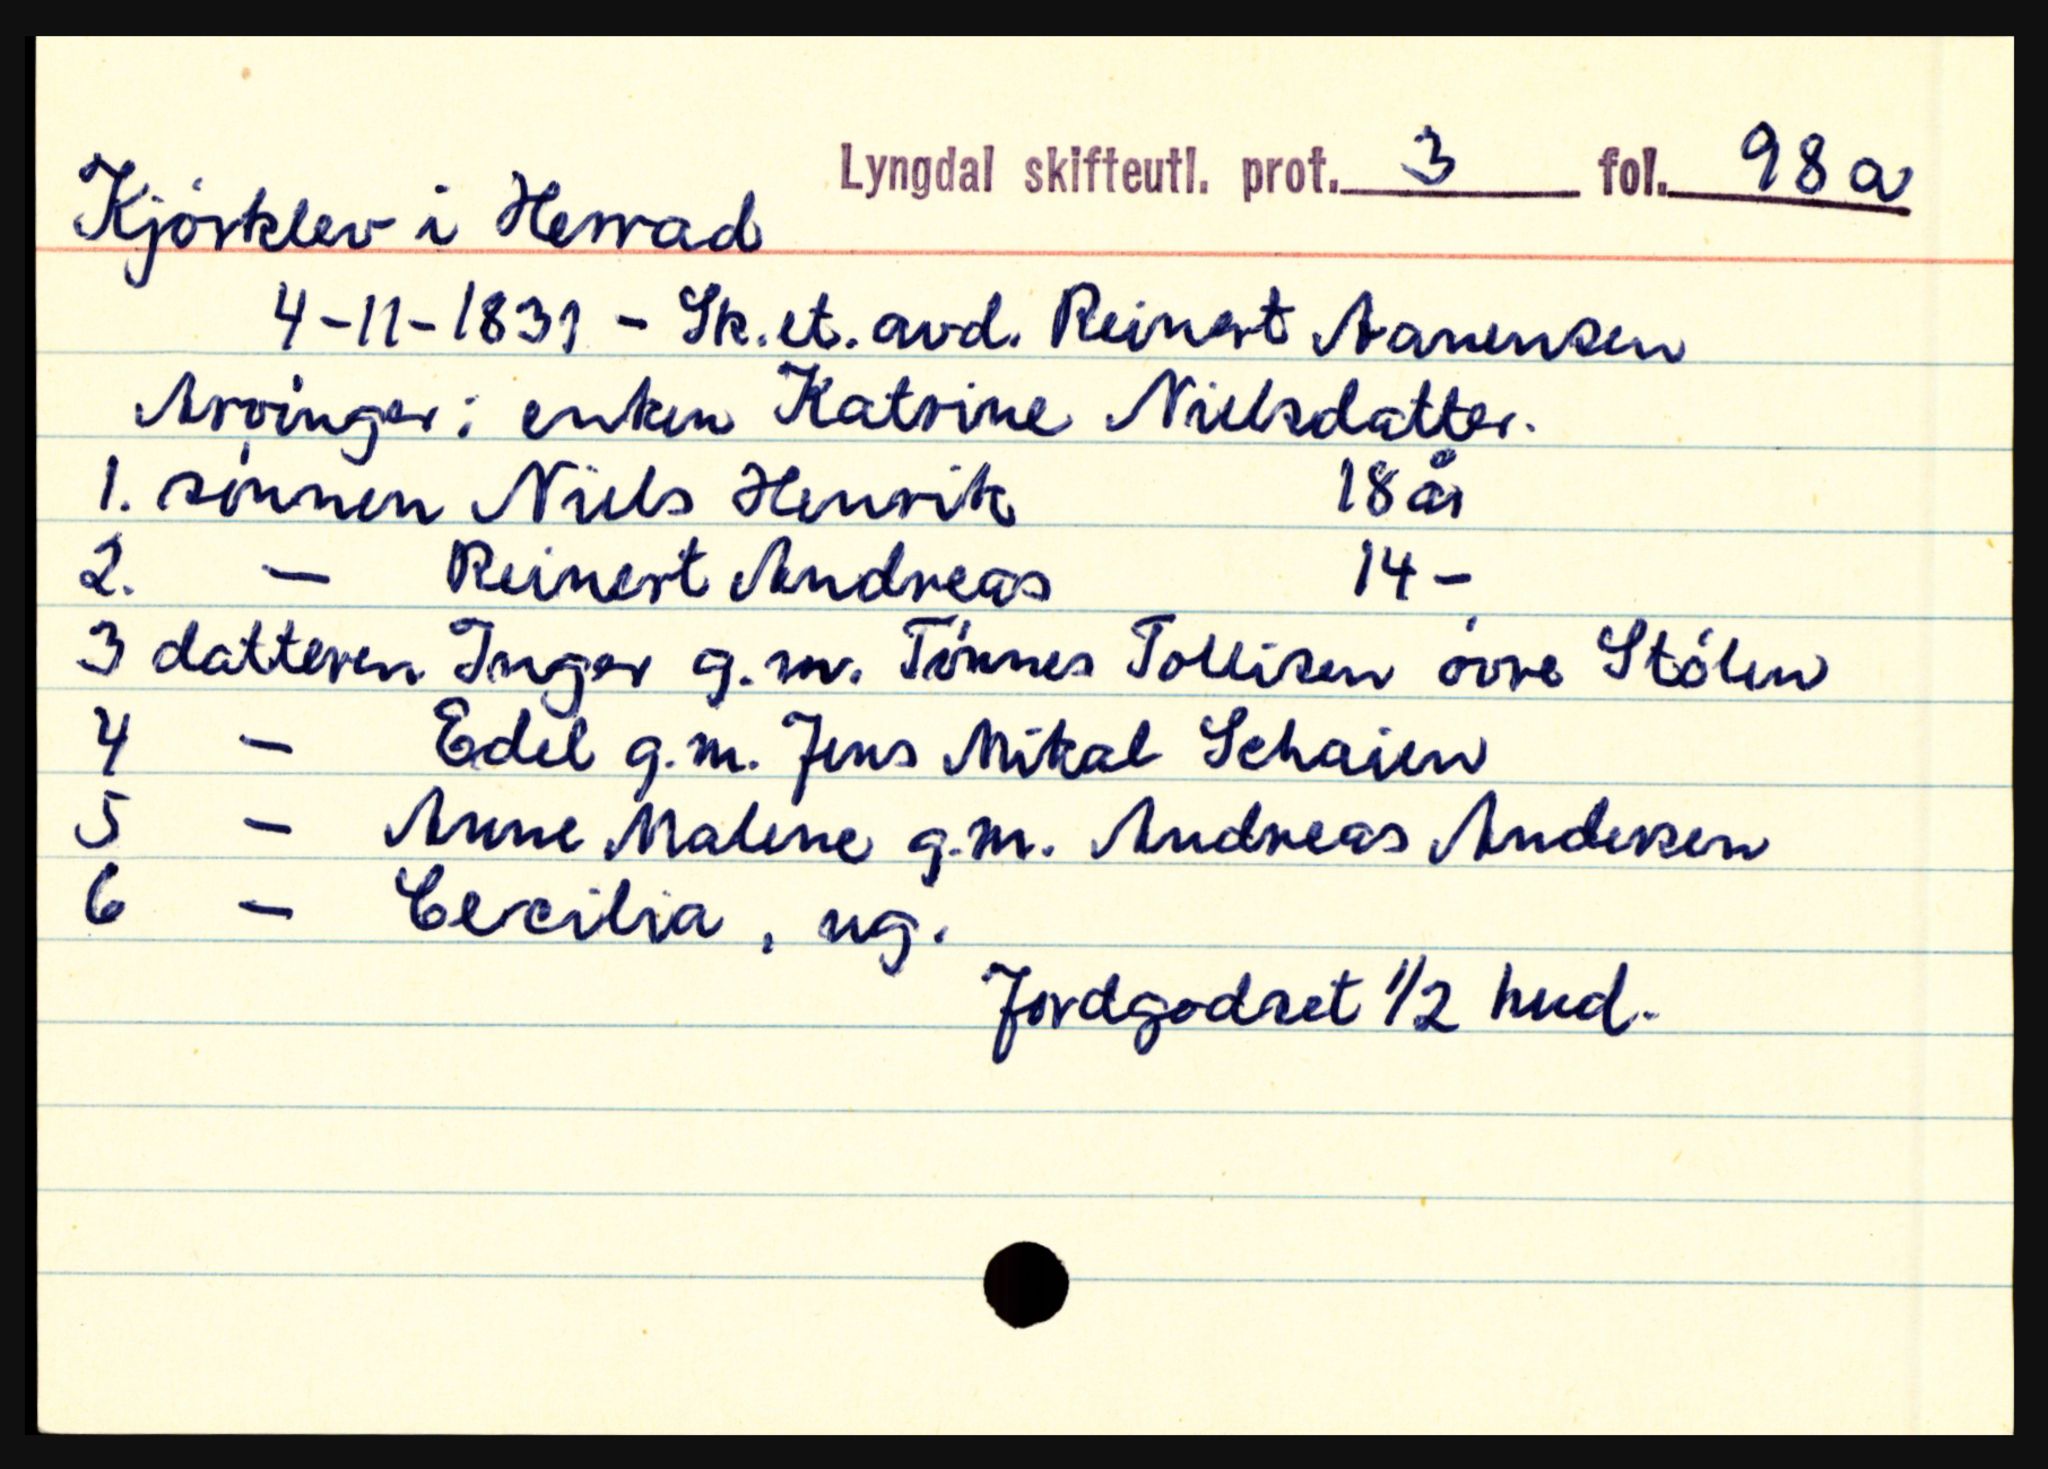 Lyngdal skifteutl. prot. 3 fol. 98a
Kjørklev i Herrad
4-11-1831 - Sk. et. avd. Reinert Aanensen
Arvinger: enken Katrine Nielsdatter.
1. sønnen Niels Henrik 18 år
2. — Reinert Andreas 14 -
3 datteren Inger g.m. Tønnes Tollisen øvre Stølen
4 — Edel g.m. Jens Mikal Schaien
5 — Anne Malene g.m. Andreas Andersen
6 — Cecilia, ug.
Jordgodset 1/2 hud.